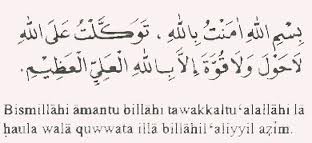 بِسْمِ اللهِ اٰمَنْتُ بِاللهِ ، تَوَكَّلْتُ عَلَى اللهِ
لَاحَوْلَ وَلَا قُوَّةَ إِلَّا بِاللهِ الْعَلِيِّ الْعَظِيْمِ.
Bismillāhi āmantu billāhi tawakkaltu‘alallāhi lā
ḥaula walā quwwata illā billāhil‘aliyyil aẓim.